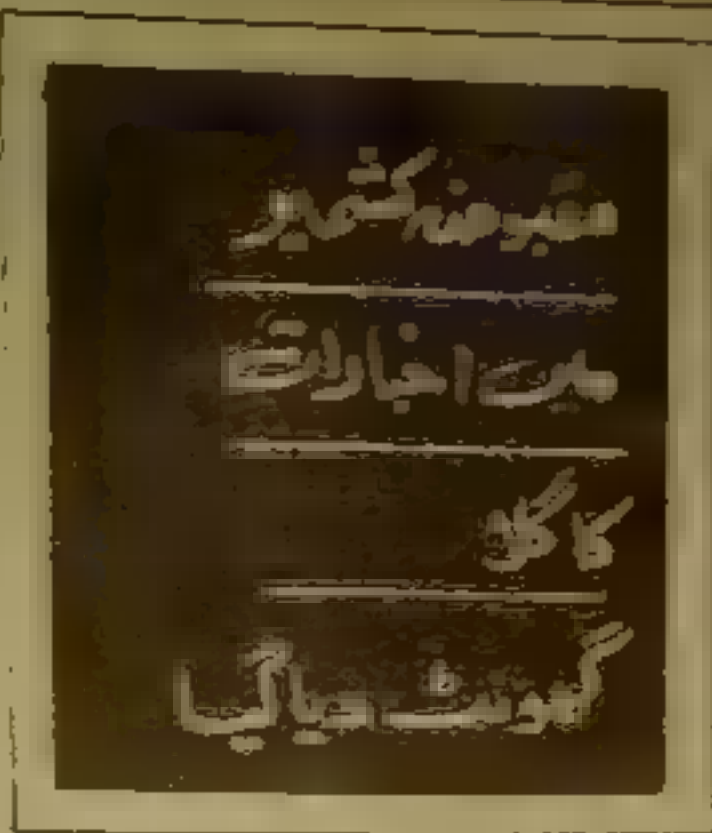 مقبوضہ کشمیر
میں اخبارات
کا گلہ
گھونٹ دیا گیا